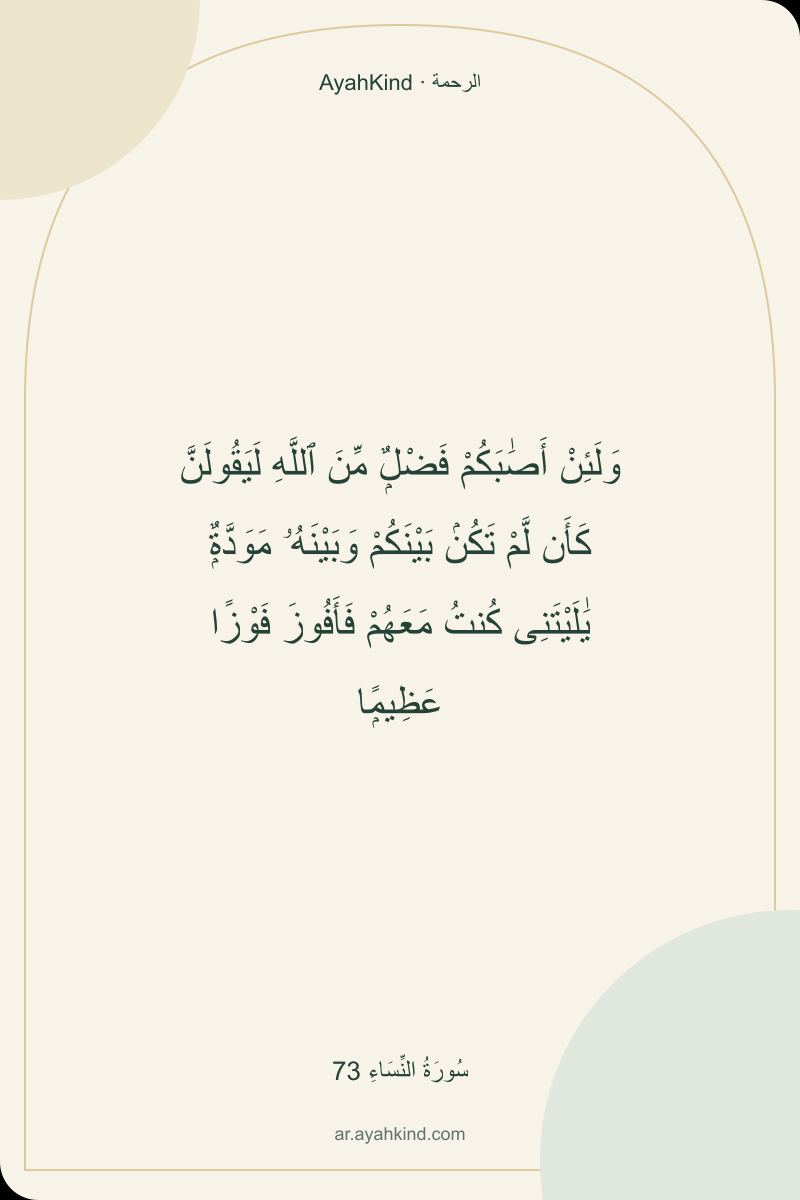 AyahKind · الرحمة
وَلَئِنْ أَصَٰبَكُمْ فَضْلٌۭ مِّنَ ٱللَّهِ لَيَقُولَنَّ
كَأَن لَّمْ تَكُنۢ بَيْنَكُمْ وَبَيْنَهُۥ مَوَدَّةٌۭ
يَٰلَيْتَنِى كُنتُ مَعَهُمْ فَأَفُوزَ فَوْزًا
عَظِيمًۭا
سُورَةُ النِّسَاءِ 73
ar.ayahkind.com